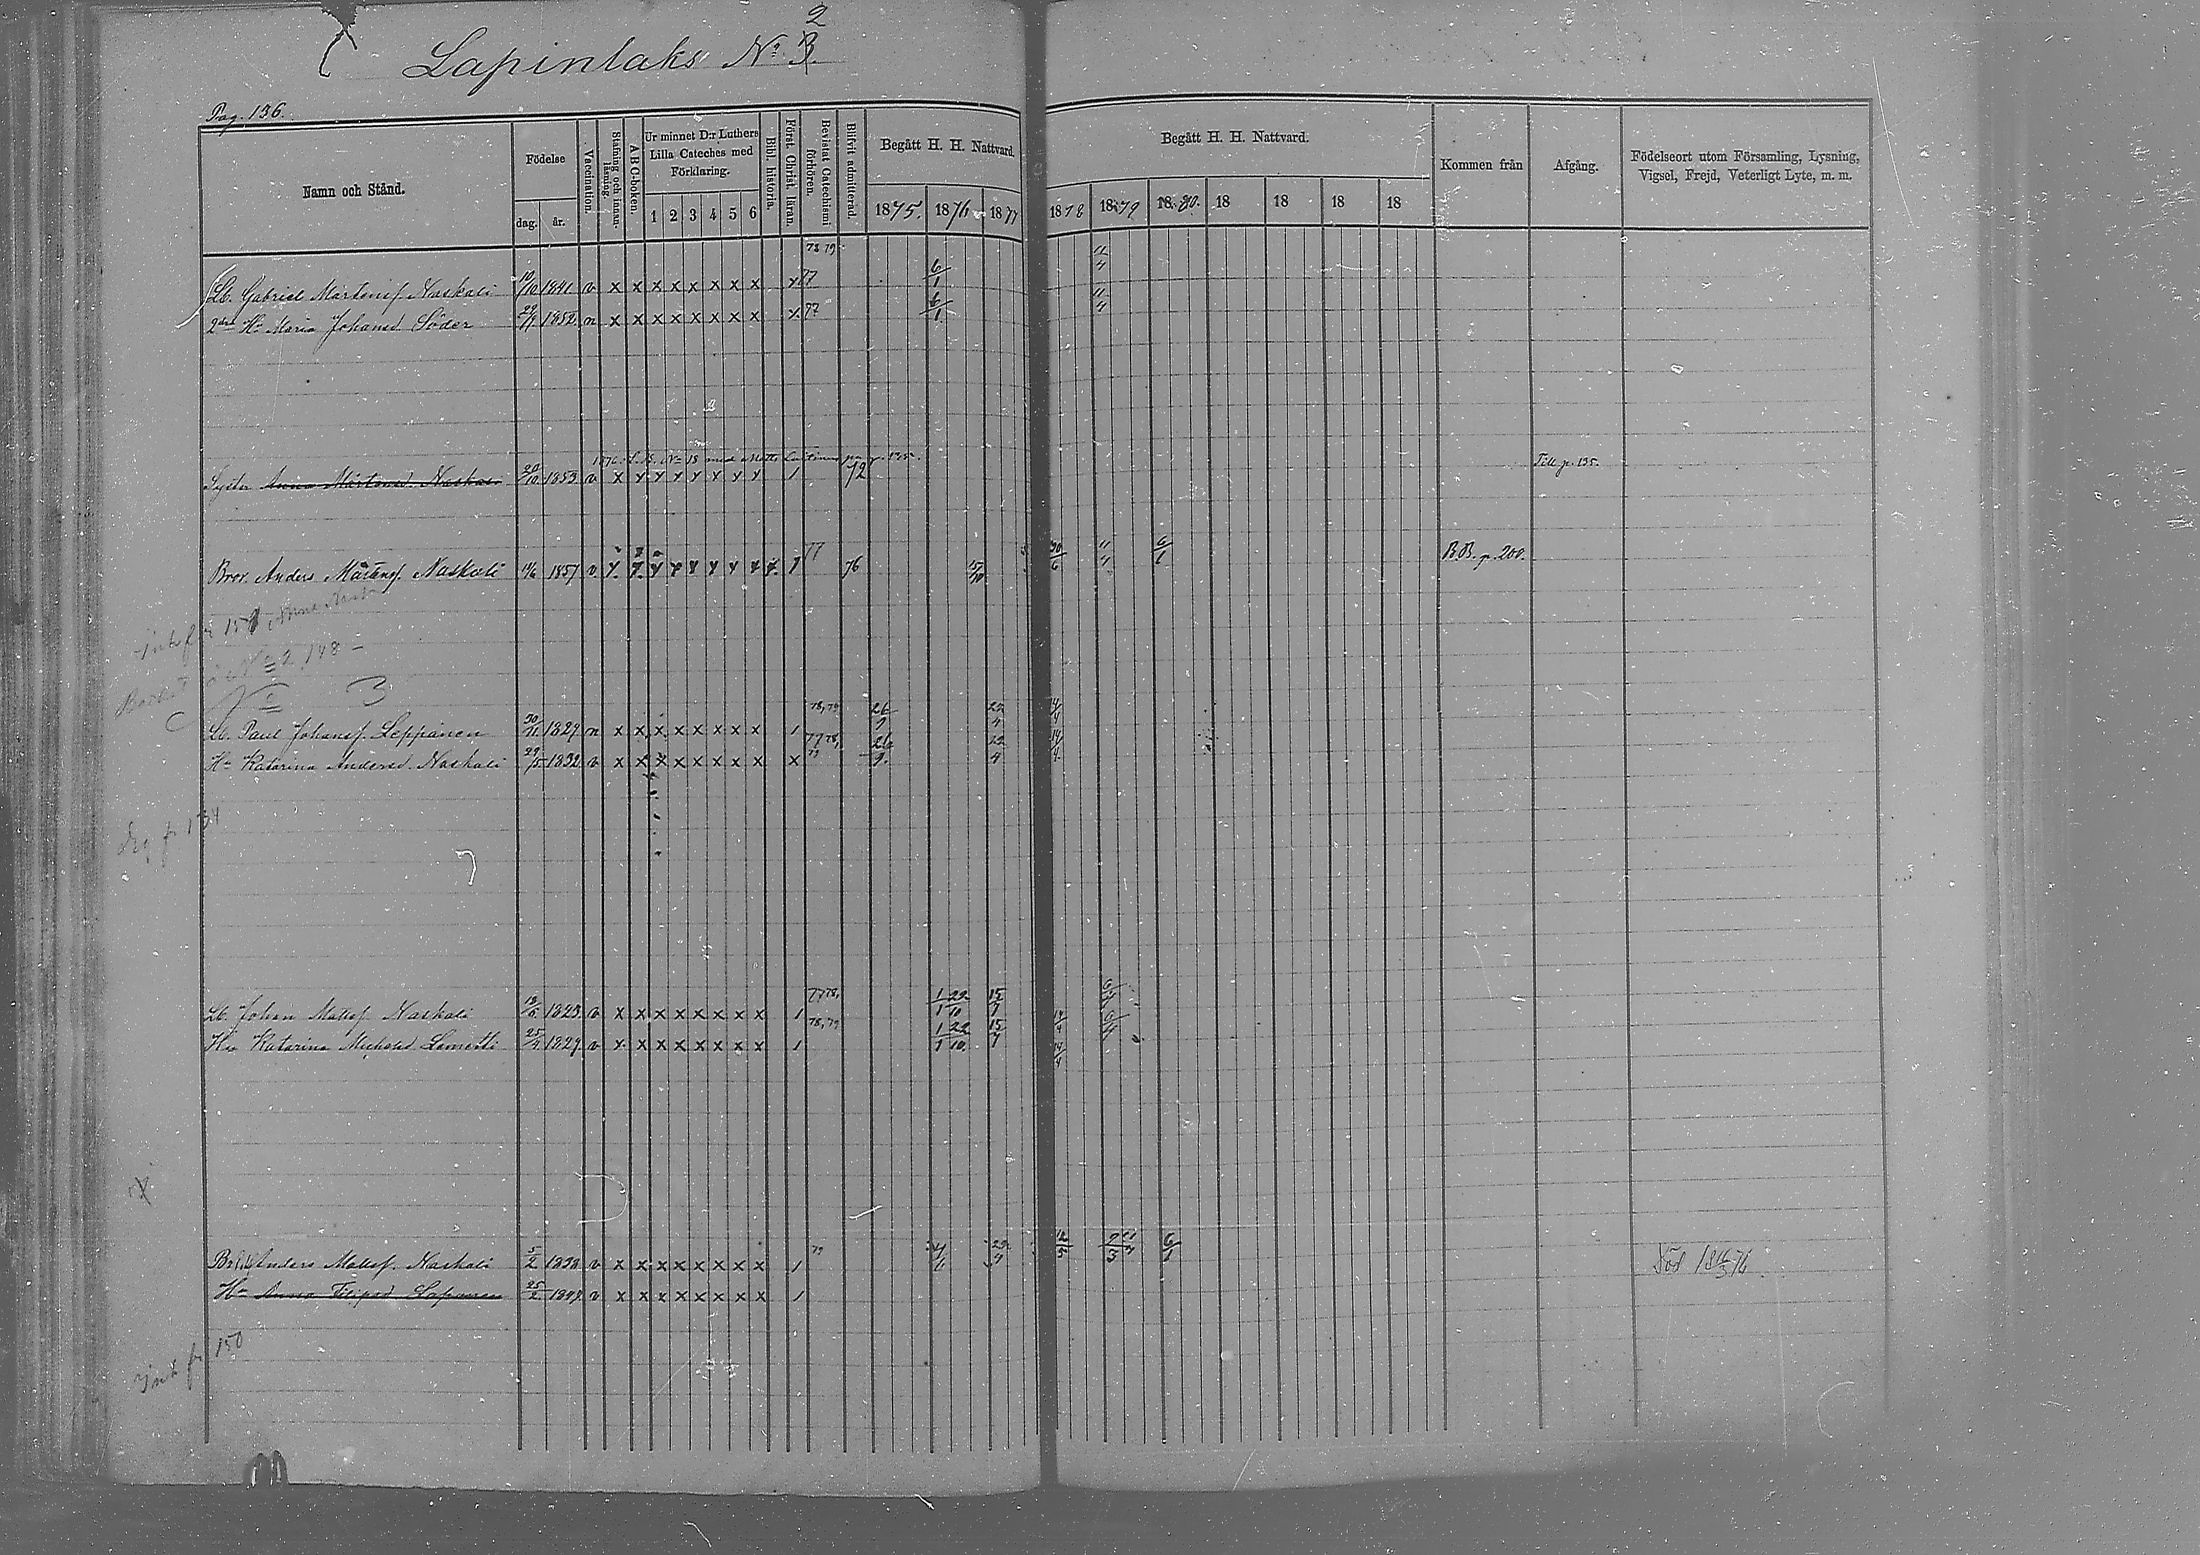 Lapinlaks Nº 3. 2
Pag. 136.
Namn och Stånd. Födelse dag. år. Vaccination. Stafning och innanläsning. A B C-boken. Ur minnet D:r Luthers Lilla Cateches med Förklaring. 1 2 3 4 5 6 Bibl. historia. Först. Christ. läran. Bevistat Catechismi förhören. Blifvit admitterad. Begått H. H. Nattvard. 1875. 1876 1877
Begått H. H. Nattvard. 1878 1879 1880. 18 18 18 18 Kommen från Afgång. Födelseort utom Församling, Lysning, Vigsel, Frejd, Veterligt Lyte, m. m.
78 79
Lb. Gabriel Mårtensf. Naskali 10/10 1841 v x x x x x x x x x 77 6/1 11/4
2dra Hu Maria Johansd Söder 1852 n x x x x x x x x x 77 6/1 11/4
Syster Anna Mårtensd. Naskali 20/10 1853 v x x x x x x x x 1 72 Till p. 135.
Bror. Anders Mårtensf. Naskali 1857 v x x x x x x x x x 1 77 76 15/10 30/6 11/4 6/1 B.B. p. 200.
Nº 2 148 -
3
Lb. Paul Johansf. Leppänen 30/11 1829 n x x x x x x x x 1 78, 79 26/9 22/4 14/4
Hu Katarina Andersd. Naskali 29/5 1832 v x x x x x x x x x 77 78, 79 26/9. 22/4 14/4
fr 134
Lb. Johan Mattsf. Naskali 1823 v x x x x x x x x 1 77 78, 1/1 22/10 15/7 14/4 6/4
Hu Katarina Michelsd 1829 v x x x x x x x x 1 78, 79 1/1 22/10. 15/7 14/4 6/4
x
Br. Lb Anders Mattsf. Naskali 5/2 1838 v x x x x x x x x 1 79 22/4 6/1
Hu Anna Filipsd 25/2 1849 v x x x x x x x x 1 Död 18 76
fr 150